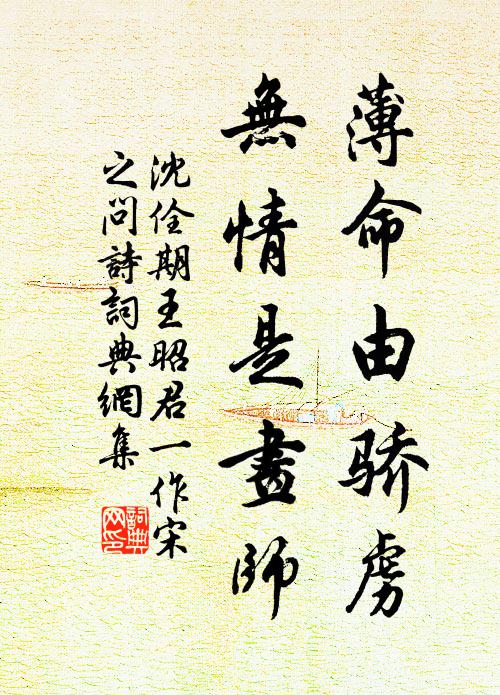 薄命由骄虏
無情是畫師
沈佺期王昭君一作宋
之问詩詞典網集
詞典
网印